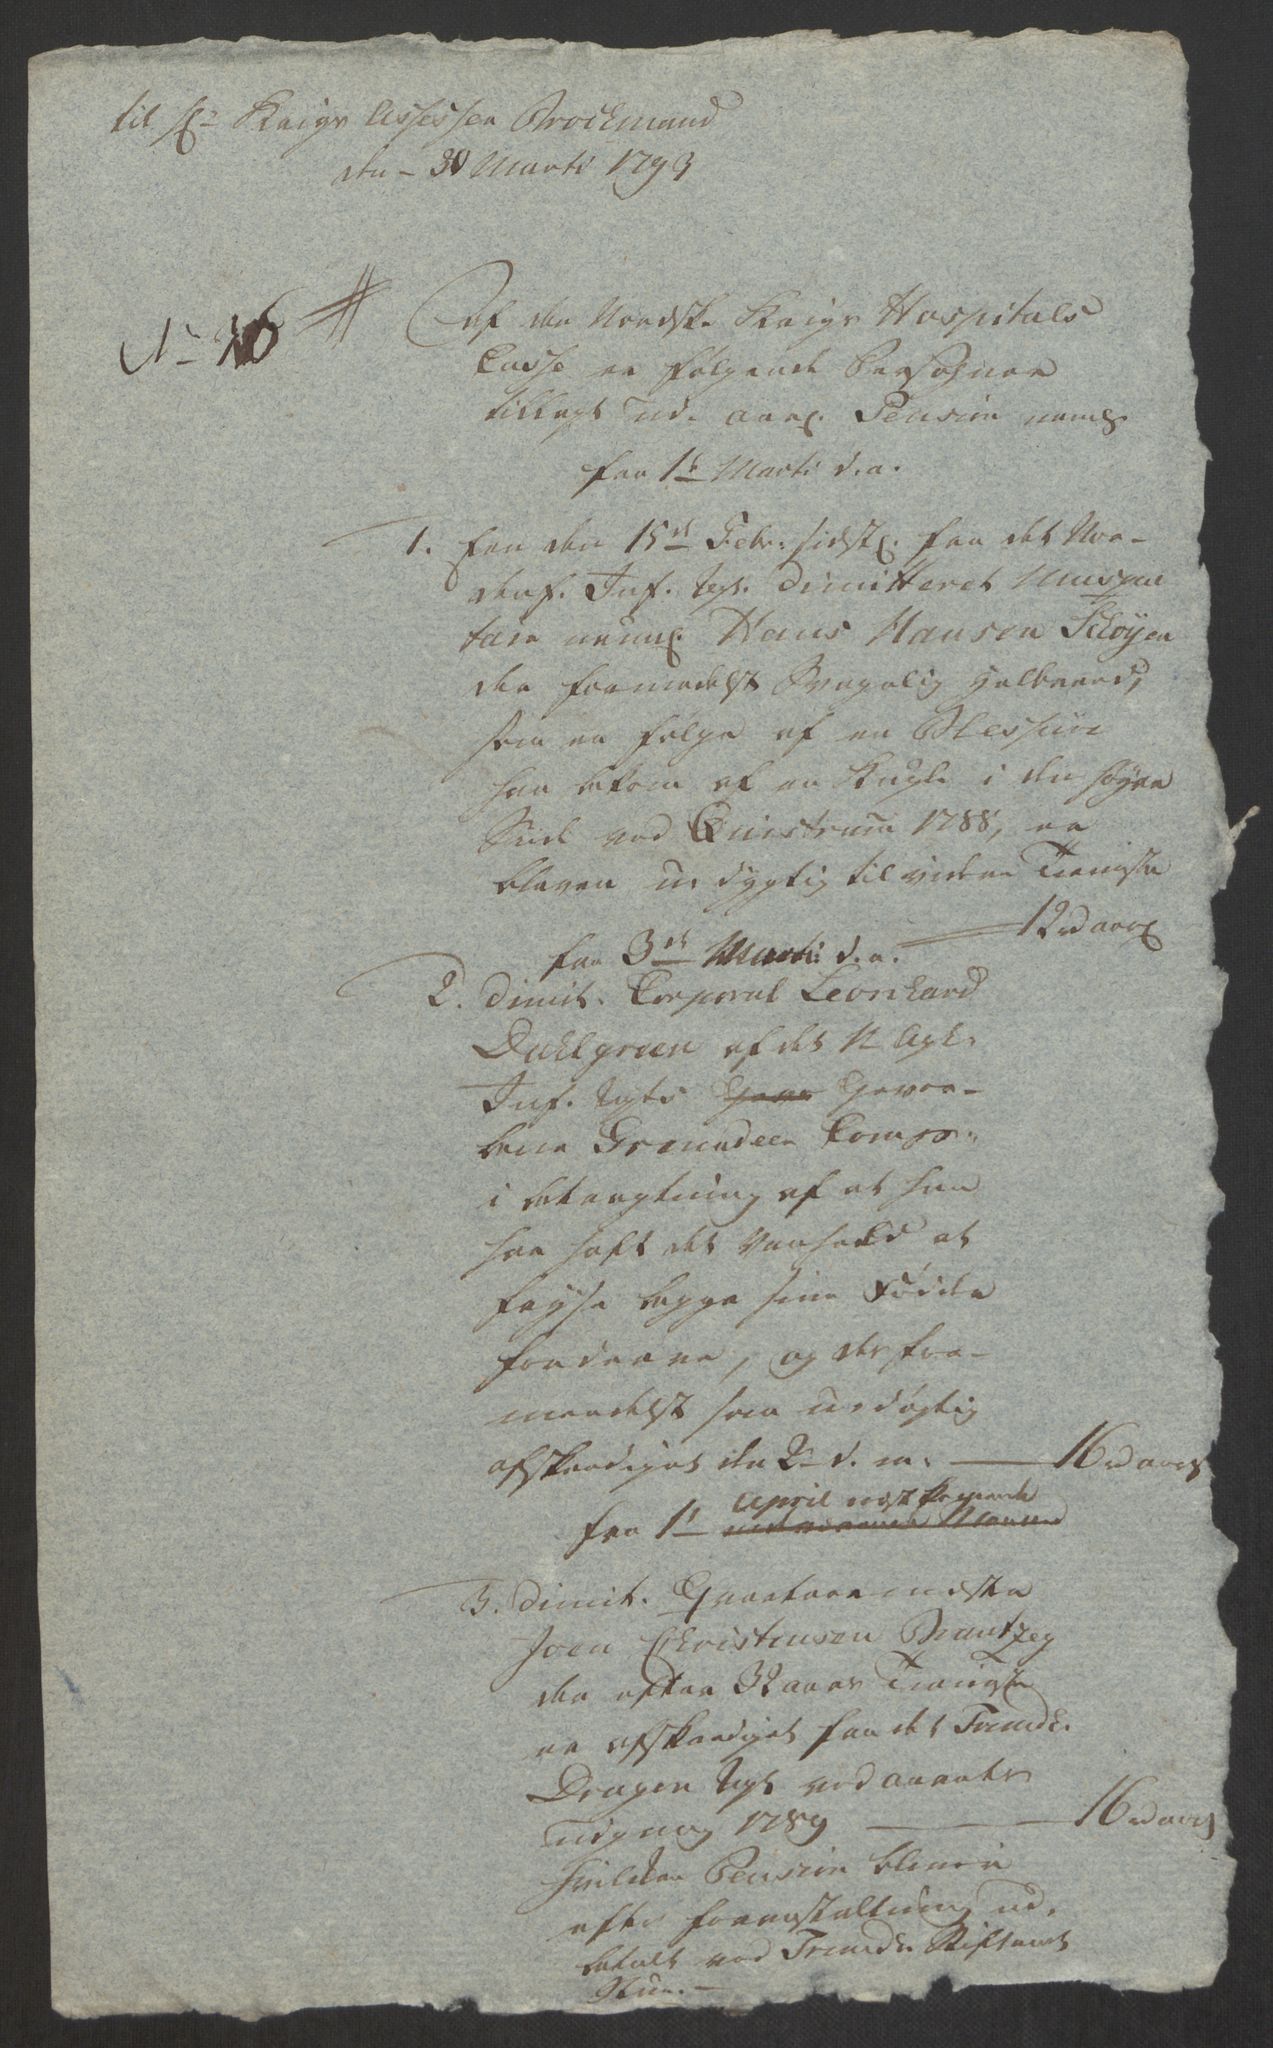 til Hr Krigs Assessor Brockmand
den 30 Marti 1793
No 16
Af den Nordske Krigs Hospitals
Casse er følgende Personer
tillagt ud. aarl. Pension neml.
fra 1te Marti d.a.
1. Een den 15de Febr. sidstl. fra det Nor-
denf. Inf. Regt. dimitteret Musque
taire navnl. Hans Hansen Schøyen
der formedelst Svagelighed,
som en følge af en Blessure
han bekom af en Kugle i den høyre
Side ved Quistrum 1788, er
bleven udygtig til videre Tieniste
12 rd aarl.
fra 3de Marti d.a.
2. dimit. Corporal Leonhard
Dahlgreen af det N. Agh.
Inf. Regts Gevor-
bene Grenadeer Comp.
i betragtning af at han
har haft det Vanheld at
fryse begge sine Fødder
fordærve, og derfor-
medelst som udøgtig
afskediget den 2 d. m. 16 rd aarl.
fra 1te April nestkommende
3. dimit. Qvarteermester
Joen Christensen Brantzeg
der efter 32 aars Tieniste
er afskediget fra det Trondh.
Dragon Regt ved aarets
Udgang 1789 16 rd aarl.
hvilken Pension bliver
efter foranstaltning ud-
betalt ved Trondh. Stiftamts
Stue.